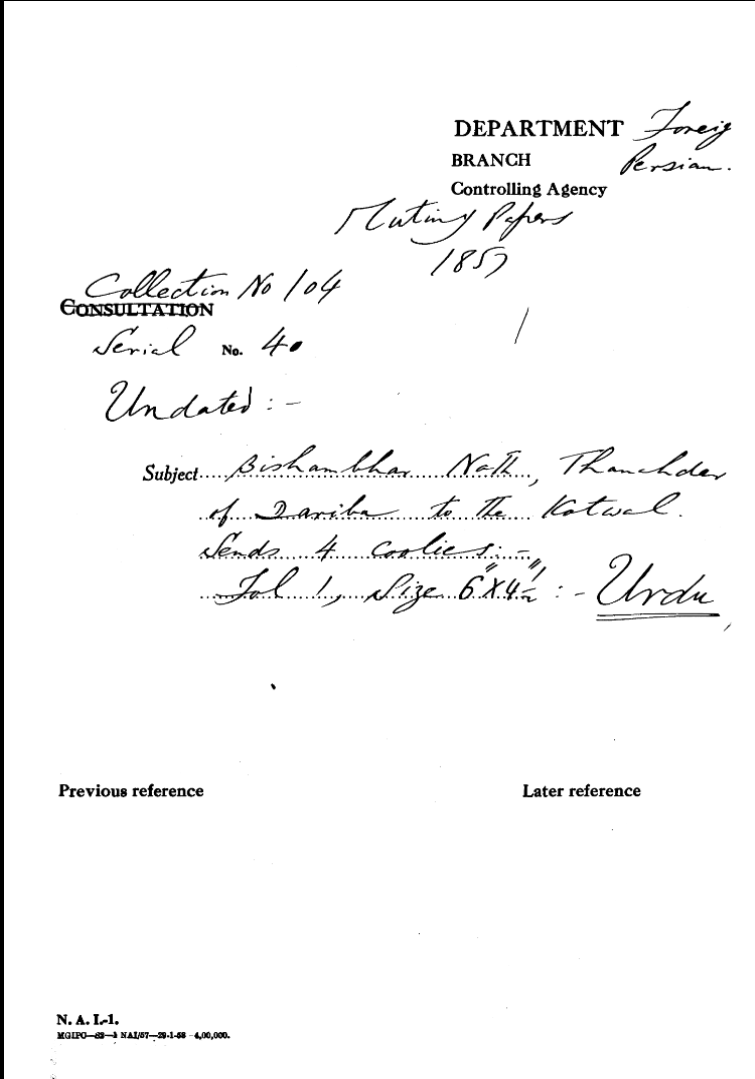 DEPARTMENT Foreig
BRANCH Persian.
Controlling Agency
Mutiny Papers
1857
Collection No 104
CONSULTATION
Serial No. 40
Undated :-
Subject Bishambhar Nath, Thanahdar
of Dariba to the Kotwal.
Sends 4 coolies :-
Fol 1, Size 6"X4½" :- Urdu
Previous reference Later reference
N. A. I.-1.
MGIPC—S2—1 NAI/57—29-1-58—4,00,000.